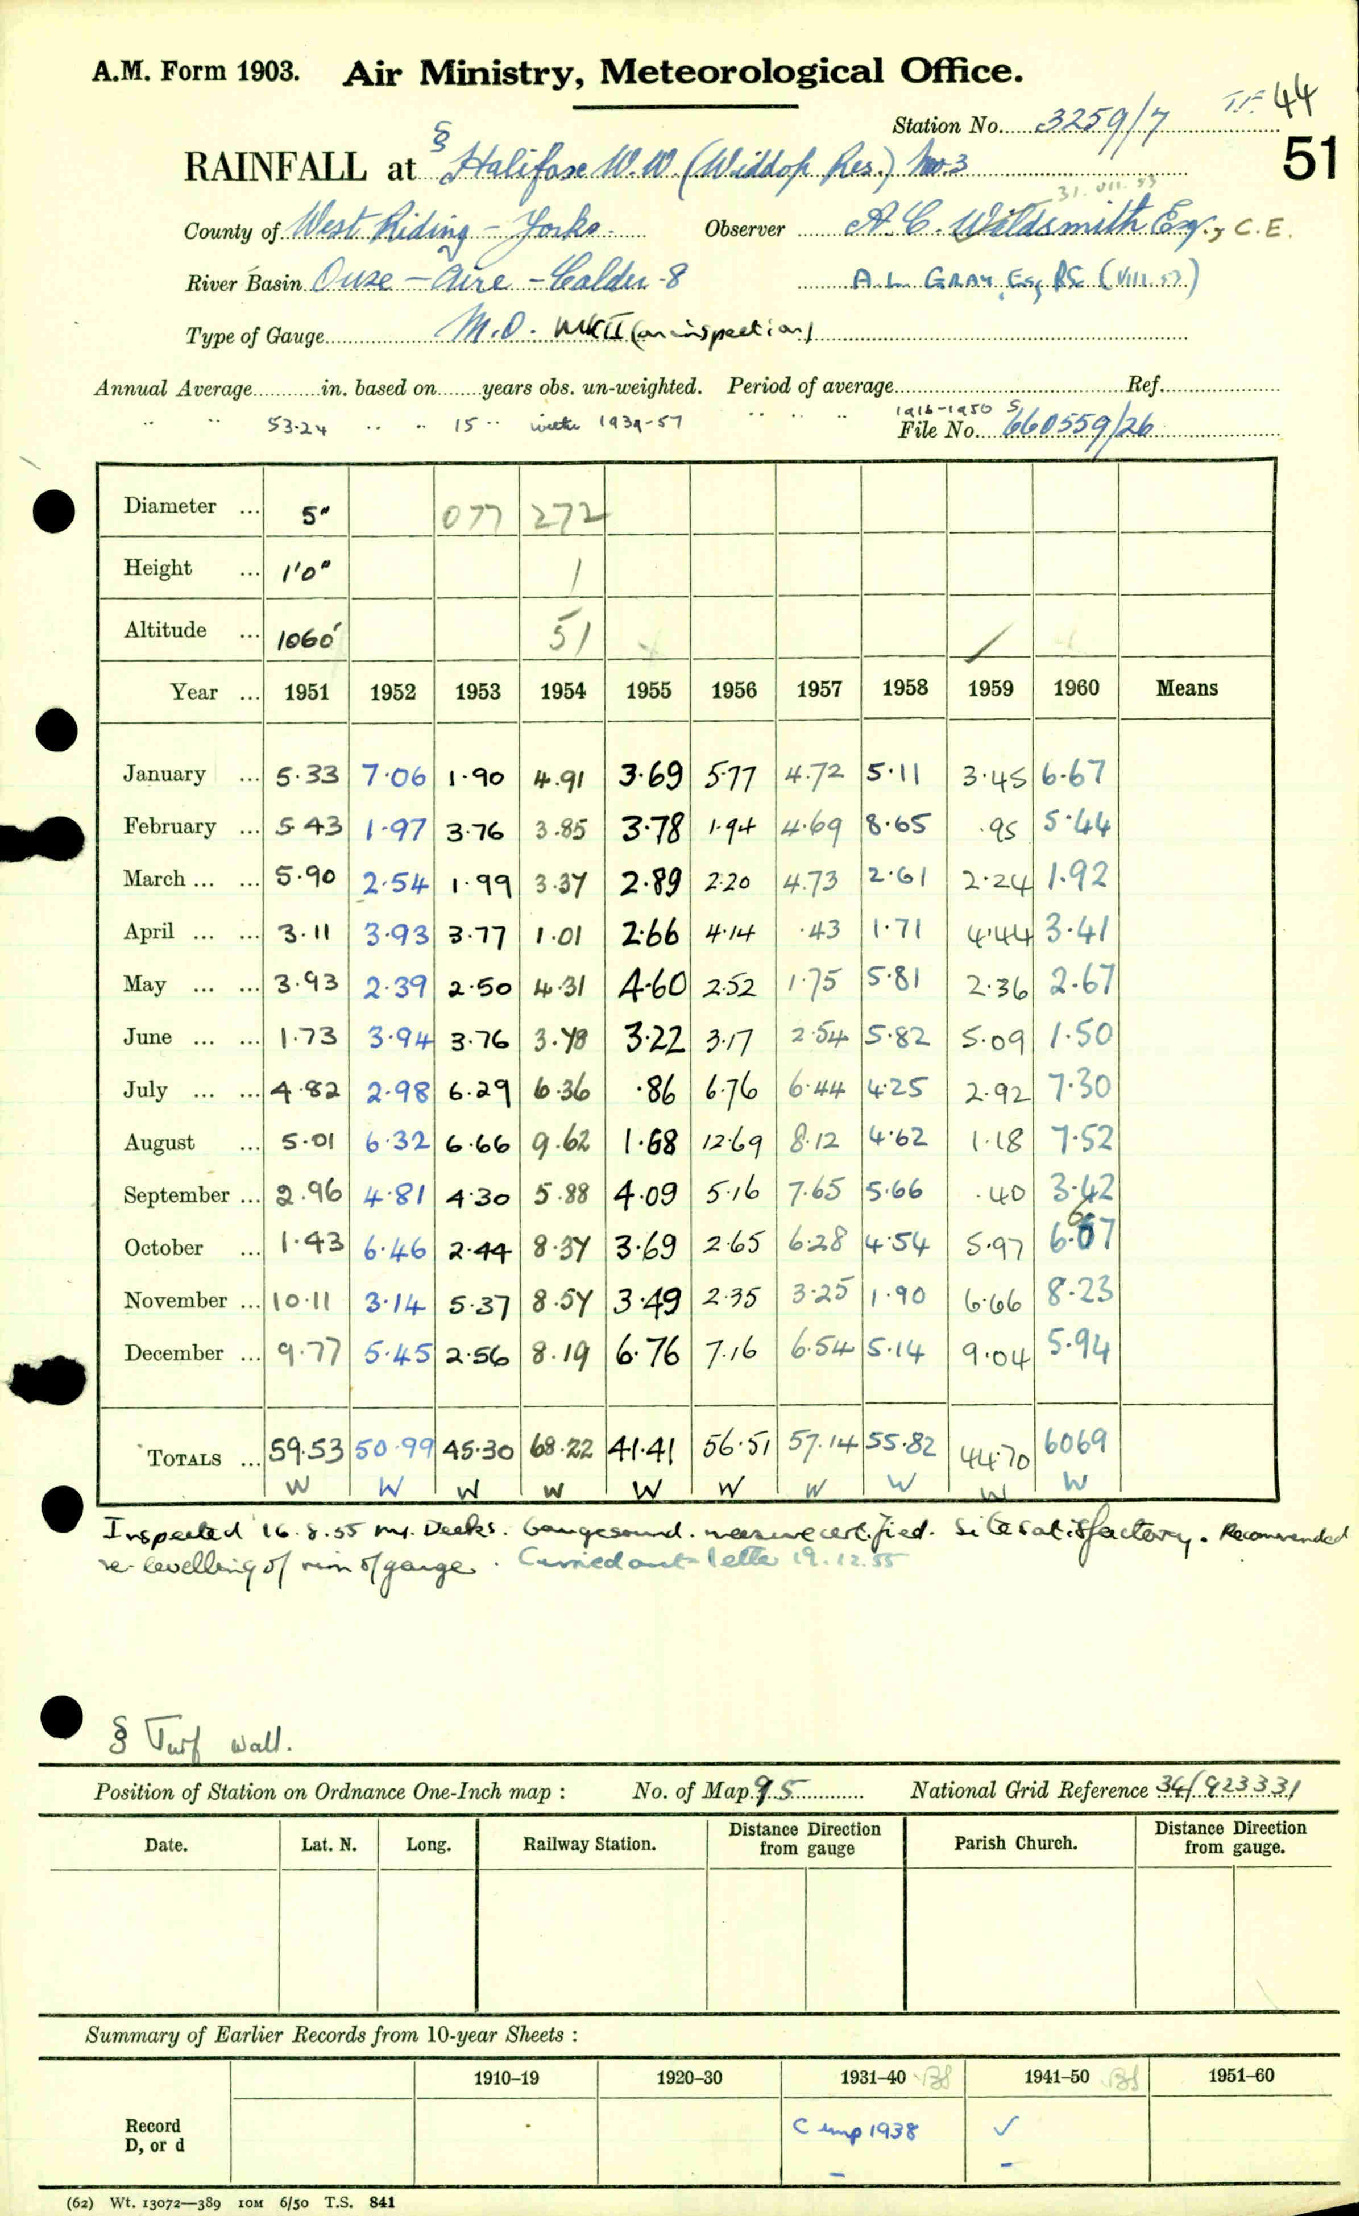 A.M. Form 1903. Air Ministry, Meteorological Office.
T.F. 44
Station No. 3259/7
51
RAINFALL at § Halifax W.W (Widdop Res.) No.3
31.VII.53
County of West Riding - Yorks. Observer A. C. Wildsmith Esq., C.E.
River Basin Ouse - Aire - Calder - 8 A. L. GRAY, Esq, BSc (VIII.53)
Type of Gauge M.O. MKII (on inspection)
Annual Average in. based on years obs. un-weighted. Period of average Ref.
" " 53.24 " " 15 " with 1939-57 " " " 1916-1950 S
File No. 660559/26
Diameter ... 5" 077 272
Height ... 1'0" 1
Altitude ... 1060' 51
Year ... 1951 1952 1953 1954 1955 1956 1957 1958 1959 1960 Means
January ... 5.33 7.06 1.90 4.91 3.69 5.77 4.72 5.11 3.45 6.67
February ... 5.43 1.97 3.76 3.85 3.78 1.94 4.69 8.65 .95 5.44
March ... ... 5.90 2.54 1.99 3.37 2.89 2.20 4.73 2.61 2.24 1.92
April ... ... 3.11 3.93 3.77 1.01 2.66 4.14 .43 1.71 4.44 3.41
May ... ... 3.93 2.39 2.50 4.31 4.60 2.52 1.75 5.81 2.36 2.67
June ... ... 1.73 3.94 3.76 3.78 3.22 3.17 2.54 5.82 5.09 1.50
July ... ... 4.82 2.98 6.29 6.36 .86 6.76 6.44 4.25 2.92 7.30
August ... 5.01 6.32 6.66 9.62 1.68 12.69 8.12 4.62 1.18 7.52
September ... 2.96 4.81 4.30 5.88 4.09 5.16 7.65 5.66 .40 3.42
October ... 1.43 6.46 2.44 8.37 3.69 2.65 6.28 4.54 5.97 6.67
November ... 10.11 3.14 5.37 8.57 3.49 2.35 3.25 1.90 6.66 8.23
December ... 9.77 5.45 2.56 8.19 6.76 7.16 6.54 5.14 9.04 5.94
TOTALS ... 59.53 50.99 45.30 68.22 41.41 56.51 57.14 55.82 44.70 60.69
W W W W W W W W W W
Inspected 16.8.55 Mr. Deeks. Gauge sound. measure certified. Site satisfactory. Recommended
re-levelling of rim of gauge. Carried out letter 19.12.55
§ Turf wall.
Position of Station on Ordnance One-Inch map : No. of Map 95 National Grid Reference 34/923331
Date. Lat. N. Long. Railway Station. Distance Direction from gauge Parish Church. Distance Direction from gauge.
Summary of Earlier Records from 10-year Sheets :
1910-19 1920-30 1931-40 1941-50 1951-60
Record C 1938 ✓
D, or d - -
(62) Wt. 13072—389 10M 6/50 T.S. 841